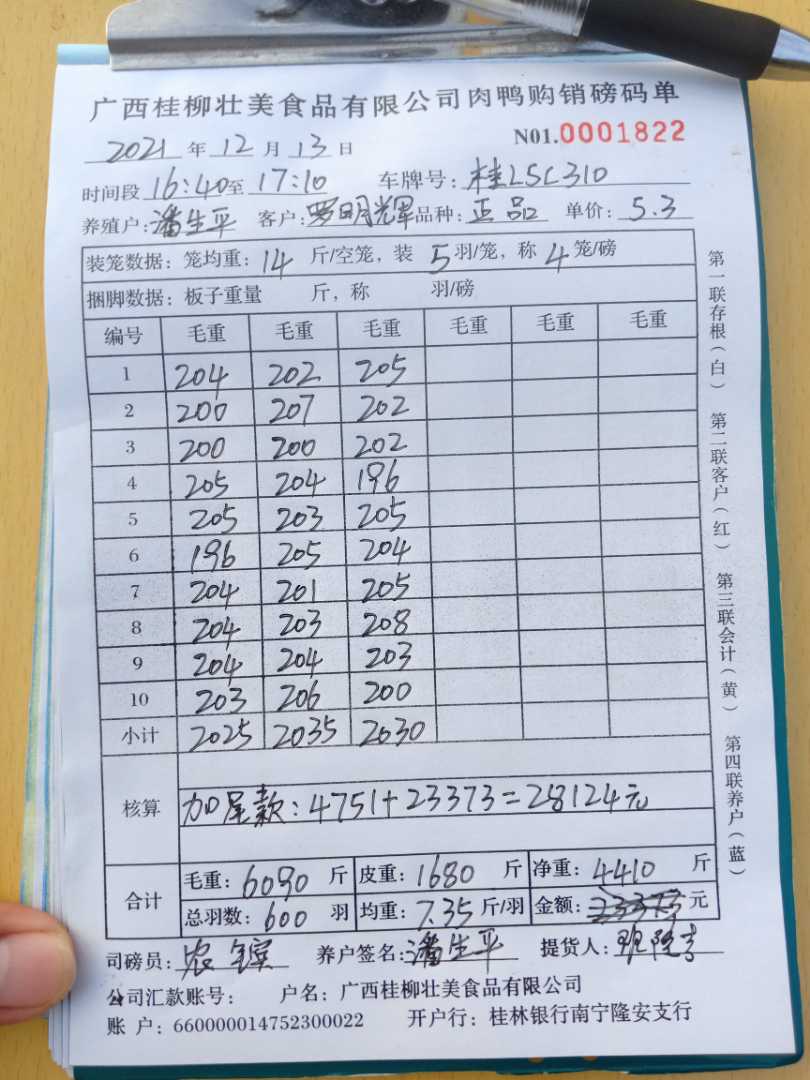 广西桂柳壮美食品有限公司肉鸭购销磅码单
2021 年 12 月 13 日 N01.0001822
时间段 16:40 至 17:10 车牌号: 桂LSC310
养殖户: 潘生平 客户: 罗明辉 品种: 正品 单价: 5.3
装笼数据: 笼均重: 14 斤/空笼, 装 5 羽/笼, 称 4 笼/磅
捆脚数据: 板子重量 斤, 称 羽/磅
编号 毛重 毛重 毛重 毛重 毛重 毛重
1 204 202 205
2 200 207 202
3 200 200 202
4 205 204 196
5 205 203 205
6 196 205 204
7 204 201 205
8 204 203 208
9 204 204 203
10 203 206 200
小计 2025 2035 2030
核算 加尾款: 4751+23373=28124元
合计 毛重: 6090 斤 皮重: 1680 斤 净重: 4410 斤
总羽数: 600 羽 均重: 7.35 斤/羽 金额: 23373 元
司磅员: 农 养户签名: 潘生平 提货人:
公司汇款账号: 户名: 广西桂柳壮美食品有限公司
账 户: 660000014752300022 开户行: 桂林银行南宁隆安支行
第一联存根(白) 第二联客户(红) 第三联会计(黄) 第四联养户(蓝)